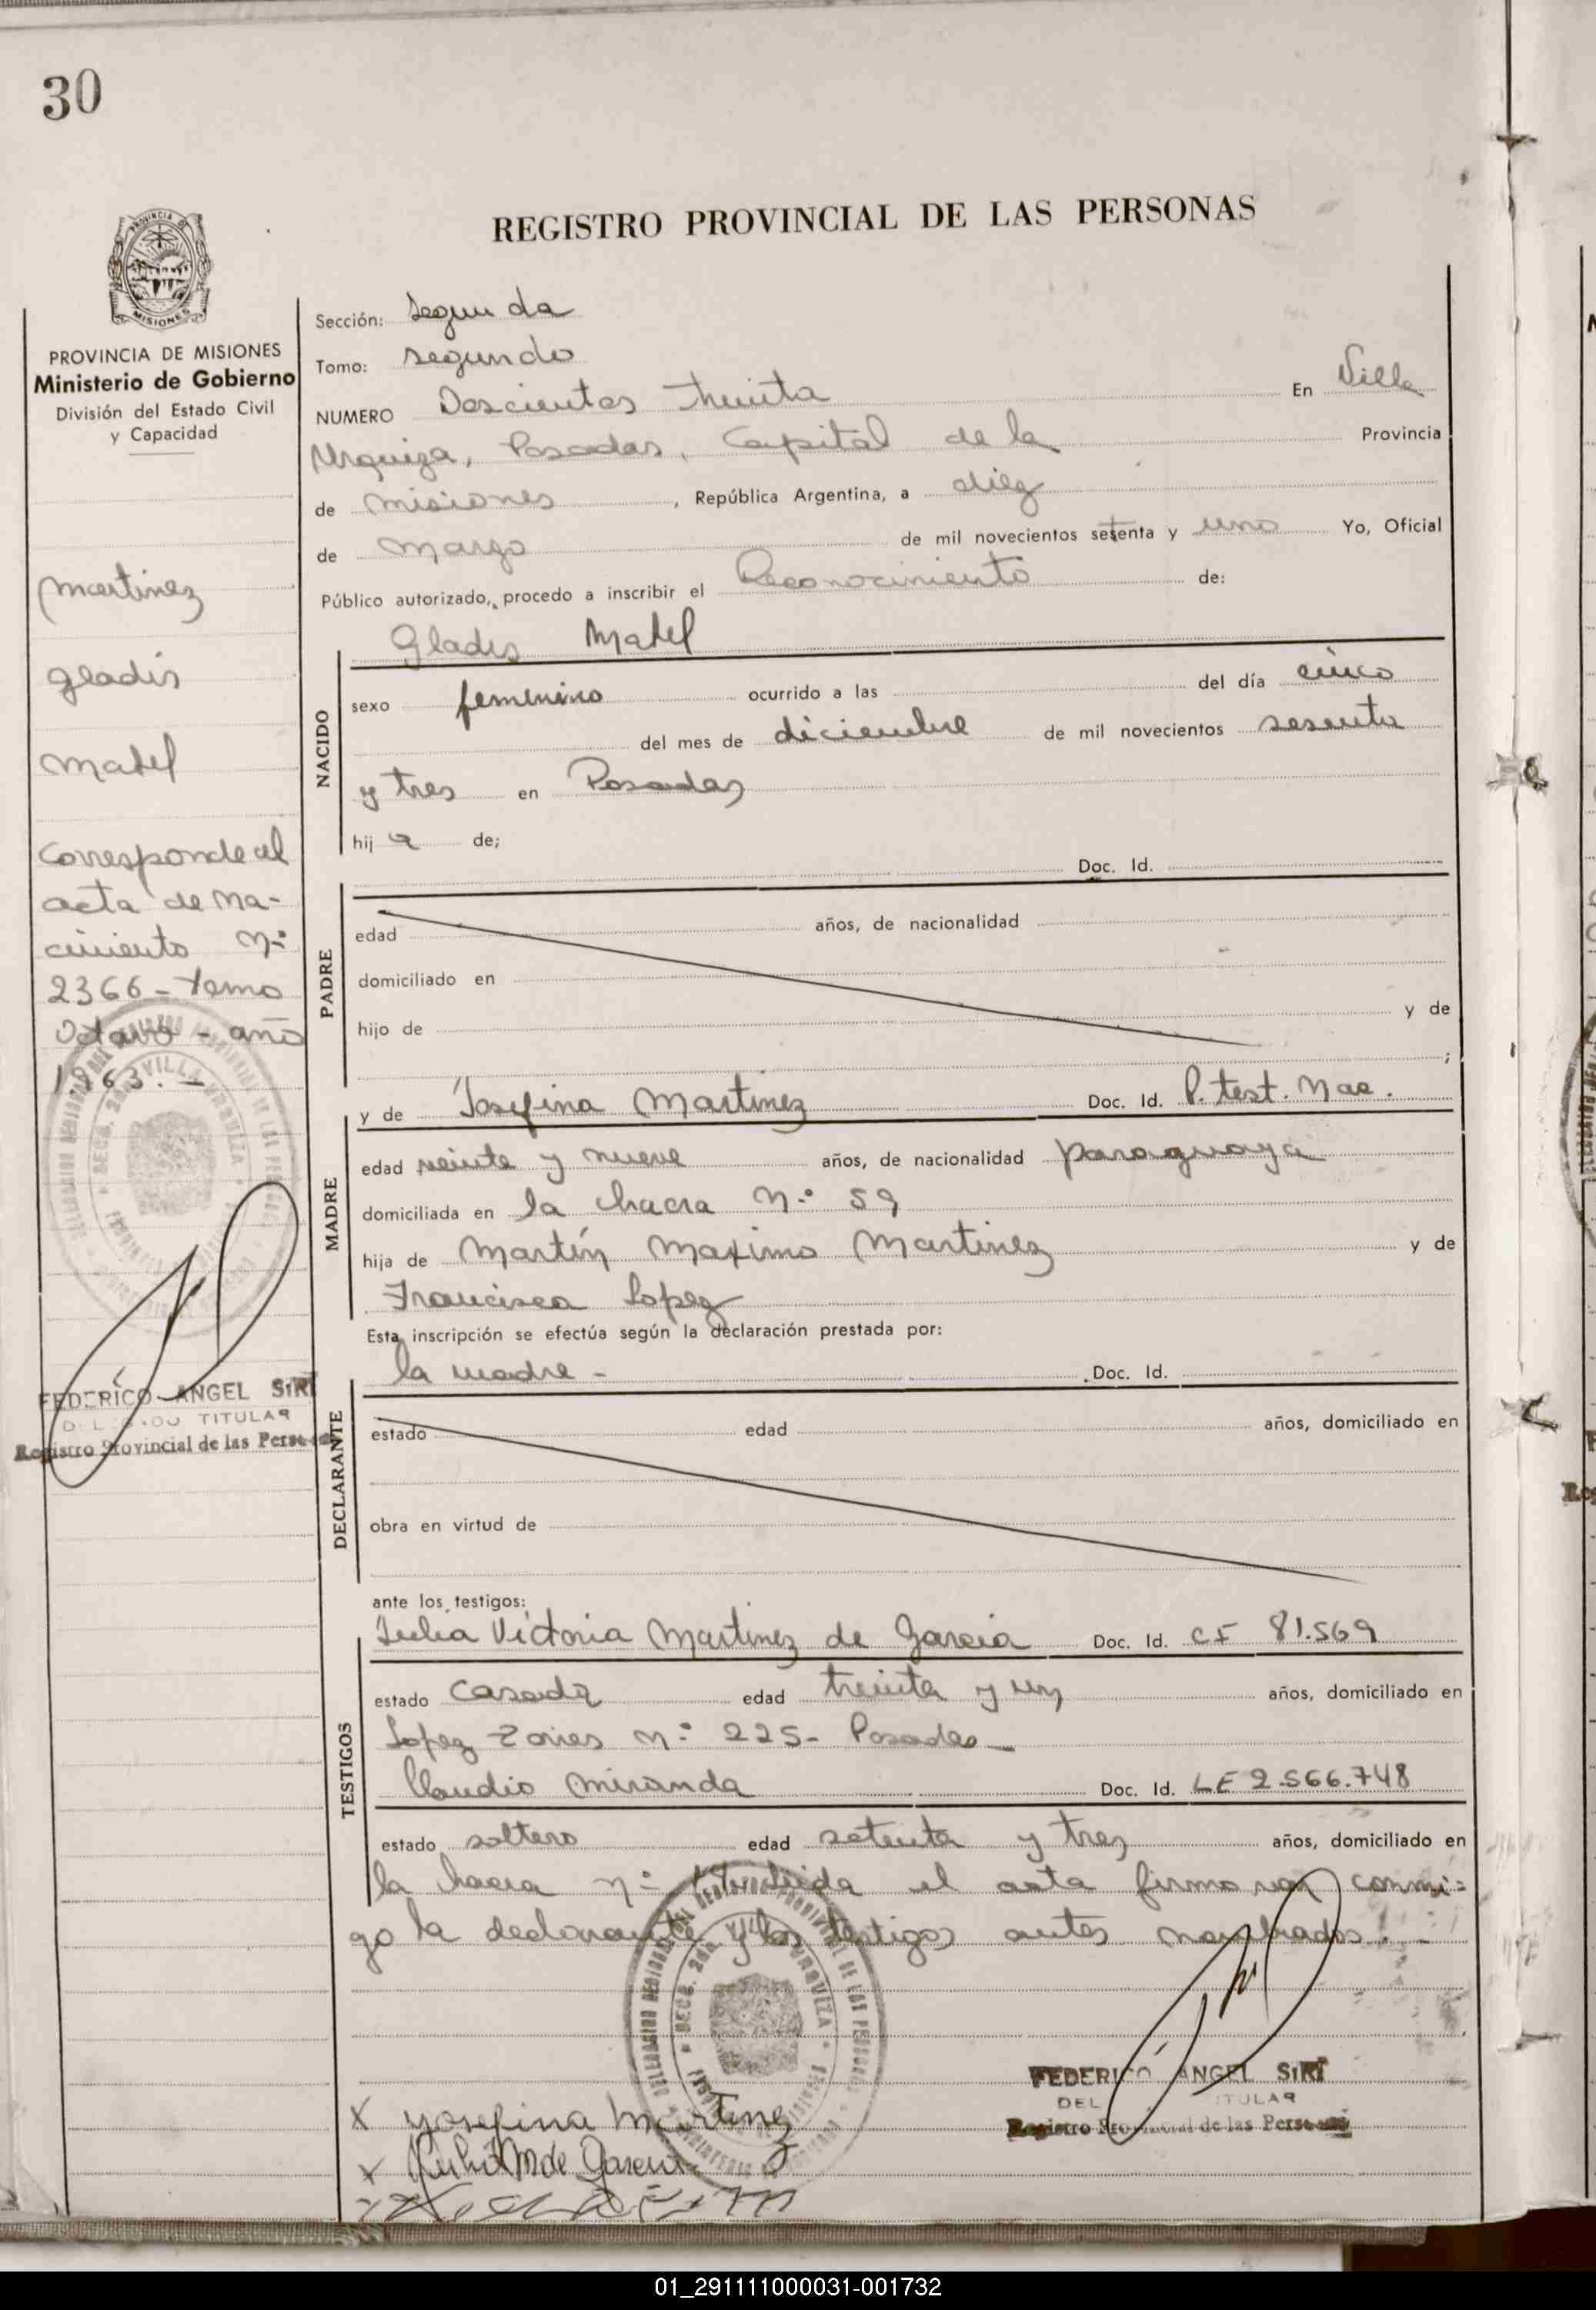 30
REGISTRO PROVINCIAL DE LAS PERSONAS
PROVINCIA DE MISIONES
Ministerio de Gobierno
División del Estado Civil
y Capacidad
martinez
gladis
mabel
Corresponde al
acta de na-
cimiento Nº
2366 - tomo
Octavo - año
1.963. -
FEDERICO ANGEL SIRI
TITULAR
Registro Provincial de las Personas
Sección: Segunda
Tomo: segundo
NUMERO Doscientos treinta En Villa
Urquiza, Posadas, Capital de la Provincia
de misiones, República Argentina, a diez
de marzo de mil novecientos setenta y uno Yo, Oficial
Público autorizado, procedo a inscribir el Reconocimiento de:
Gladis Mabel
NACIDO
sexo femenino ocurrido a las del día cinco
del mes de diciembre de mil novecientos sesenta
y tres en Posadas
hija de;
Doc. Id.
PADRE
edad años, de nacionalidad
domiciliado en
hijo de y de
;
y de Josefina Martinez Doc. Id. P. test. Nac.
MADRE
edad veinte y nueve años, de nacionalidad paraguaya
domiciliada en la chacra Nº 59
hija de Martín Maximo Martinez y de
Francisca Lopez
Esta inscripción se efectúa según la declaración prestada por:
la madre - Doc. Id.
DECLARANTE
estado edad años, domiciliado en
obra en virtud de
ante los testigos:
Julia Victoria Martinez de Garcia Doc. Id. CI 81.569
TESTIGOS
estado casada edad treinta y un años, domiciliado en
Lopez Torres Nº 225- Posadas -
Claudio Miranda Doc. Id. LE 2.566.748
estado soltero edad setenta y tres años, domiciliado en
la chacra Nº el acta firmaron conmi=
go la declarante y los testigos antes nombrados. -
FEDERICO ANGEL SIRI
DEL TITULAR
Registro Provincial de las Personas
x yosefina martinez
x Julia M de Garcia
01_291111000031-001732